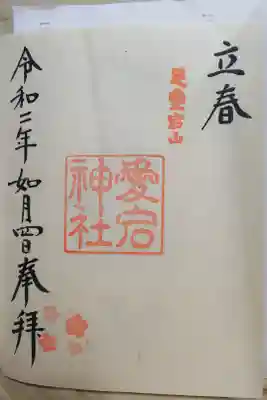 立春
愛宕山
愛宕
神社
令和二年如月四日奉拝